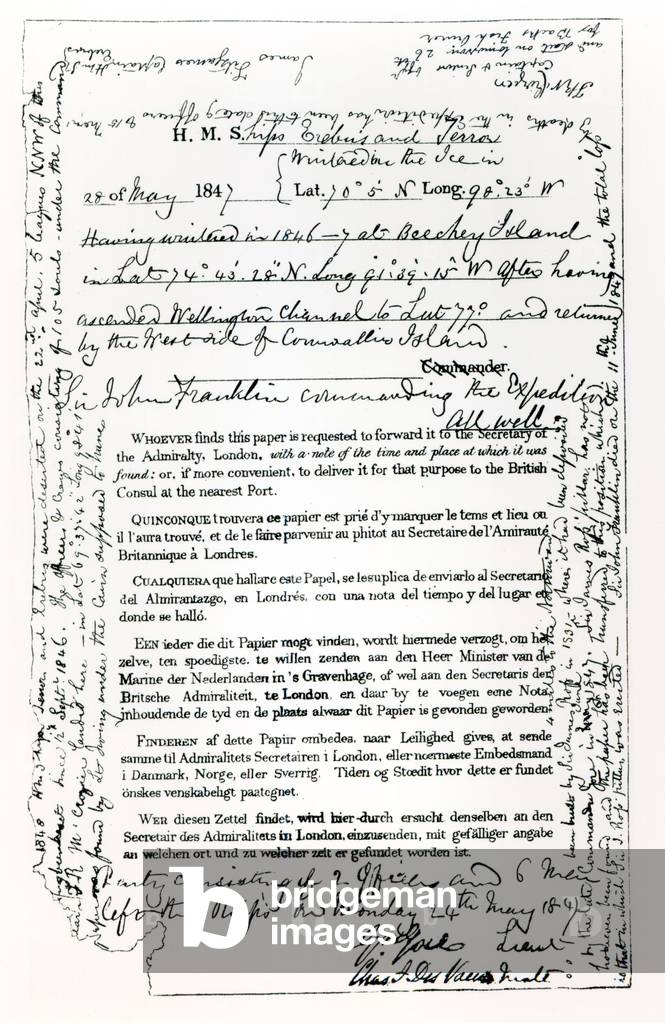 H. M. Ships Erebus and Terror
Wintered in the Ice in
28 of May 1847 Lat. 70° 5' N Long. 98° 23' W
Having wintered in 1846–7 at Beechey Island
in Lat 74° 43' 28" N. Long 91° 39' 15" W After having
ascended Wellington Channel to Lat 77° and returned
by the West side of Cornwallis Island.
Commander.
John Franklin commanding the Expedition
All well
WHOEVER finds this paper is requested to forward it to the Secretary of
the Admiralty, London, with a note of the time and place at which it was
found: or, if more convenient, to deliver it for that purpose to the British
Consul at the nearest Port.
QUINCONQUE trouvera ce papier est prié d'y marquer le tems et lieu ou
il l'aura trouvé, et de le faire parvenir au plutot au Secretaire de l'Amirauté
Britannique à Londres.
CUALQUIERA que hallare este Papel, se le suplica de enviarlo al Secretario
del Almirantazgo, en Londrés, con una nota del tiempo y del lugar en
donde se halló.
EEN ieder die dit Papier mogt vinden, wordt hiermede verzogt, om het
zelve, ten spoedigste, te willen zenden aan den Heer Minister van de
Marine der Nederlanden in 's Gravenhage, of wel aan den Secretaris der
Britsche Admiraliteit, te London, en daar by te voegen eene Nota,
inhoudende de tyd en de plaats alwaar dit Papier is gevonden geworden.
FINDEREN af dette Papiir ombedes, naar Leilighed gives, at sende
samme til Admiralitets Secretairen i London, eller nœrmeste Embedsmand
i Danmark, Norge, eller Sverrig. Tiden og Stœdit hvor dette er fundet
önskes venskabeligt paategnet.
WER diesen Zettel findet, wird hier-durch ersucht denselben an den
Secretair des Admiralitets in London, einzusenden, mit gefälliger angabe
an welchen ort und zu welcher zeit er gefundet worden ist.
Party consisting of 2 Officers and 6 Men
left the Ships on Monday 24th May 1847
Gore Lieut
Chas F Des Voeux Mate
1848 HM Ships Terror and Erebus were deserted on the 22nd April. 5 leagues NNW of this
been beset since 12th Septr 1846. The officers & Crews consisting of 105 souls - under the Command
tain F. R. M. Crozier landed here - in Lat 69° 37' 42" Long 98° 41'
paper was found by Lt Irving under the Cairn supposed to have
been built by Sir James Ross in 1831
4 miles to the Northward
where it had been deposited
by the late Commander Gore in June 1847. Sir James Ross' pillar has not
however been found and the paper has been transferred to this position which
is that in which Sir J. Ross' pillar was erected — Sir John Franklin died on the 11 June 1847 and the total loss
by deaths in the Expedition has been to this date 9 officers & 15 men.
James Fitzjames Captain HMS
Erebus
F R M Crozier
Captain & Senior Offr
and start on tomorrow 26
for Backs Fish River
b bridgeman
images